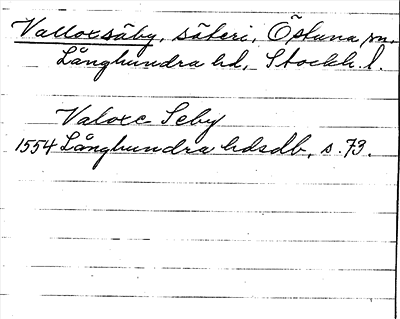 Valloxsäby, säteri, Östuna sn.
Långhundra hd, Stockh. l.
Valoxe Seby
1554 Långhundra hdsdb, s. 73.